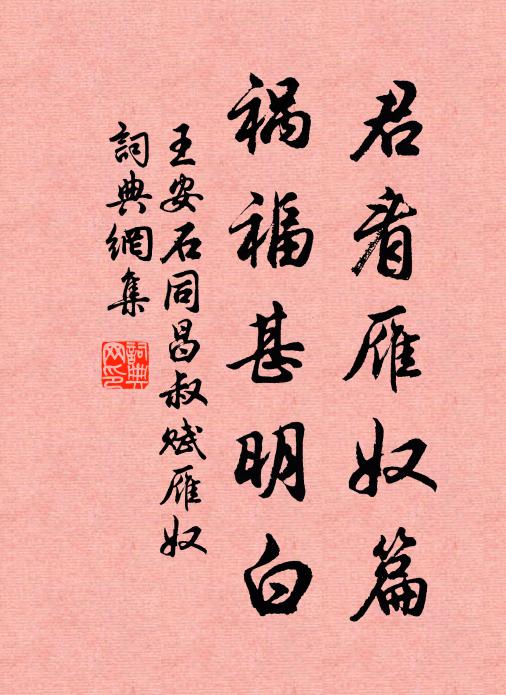 君看雁奴篇
祸福甚明白
王安石同昌叔赋雁奴
詞典網集
詞典
网印